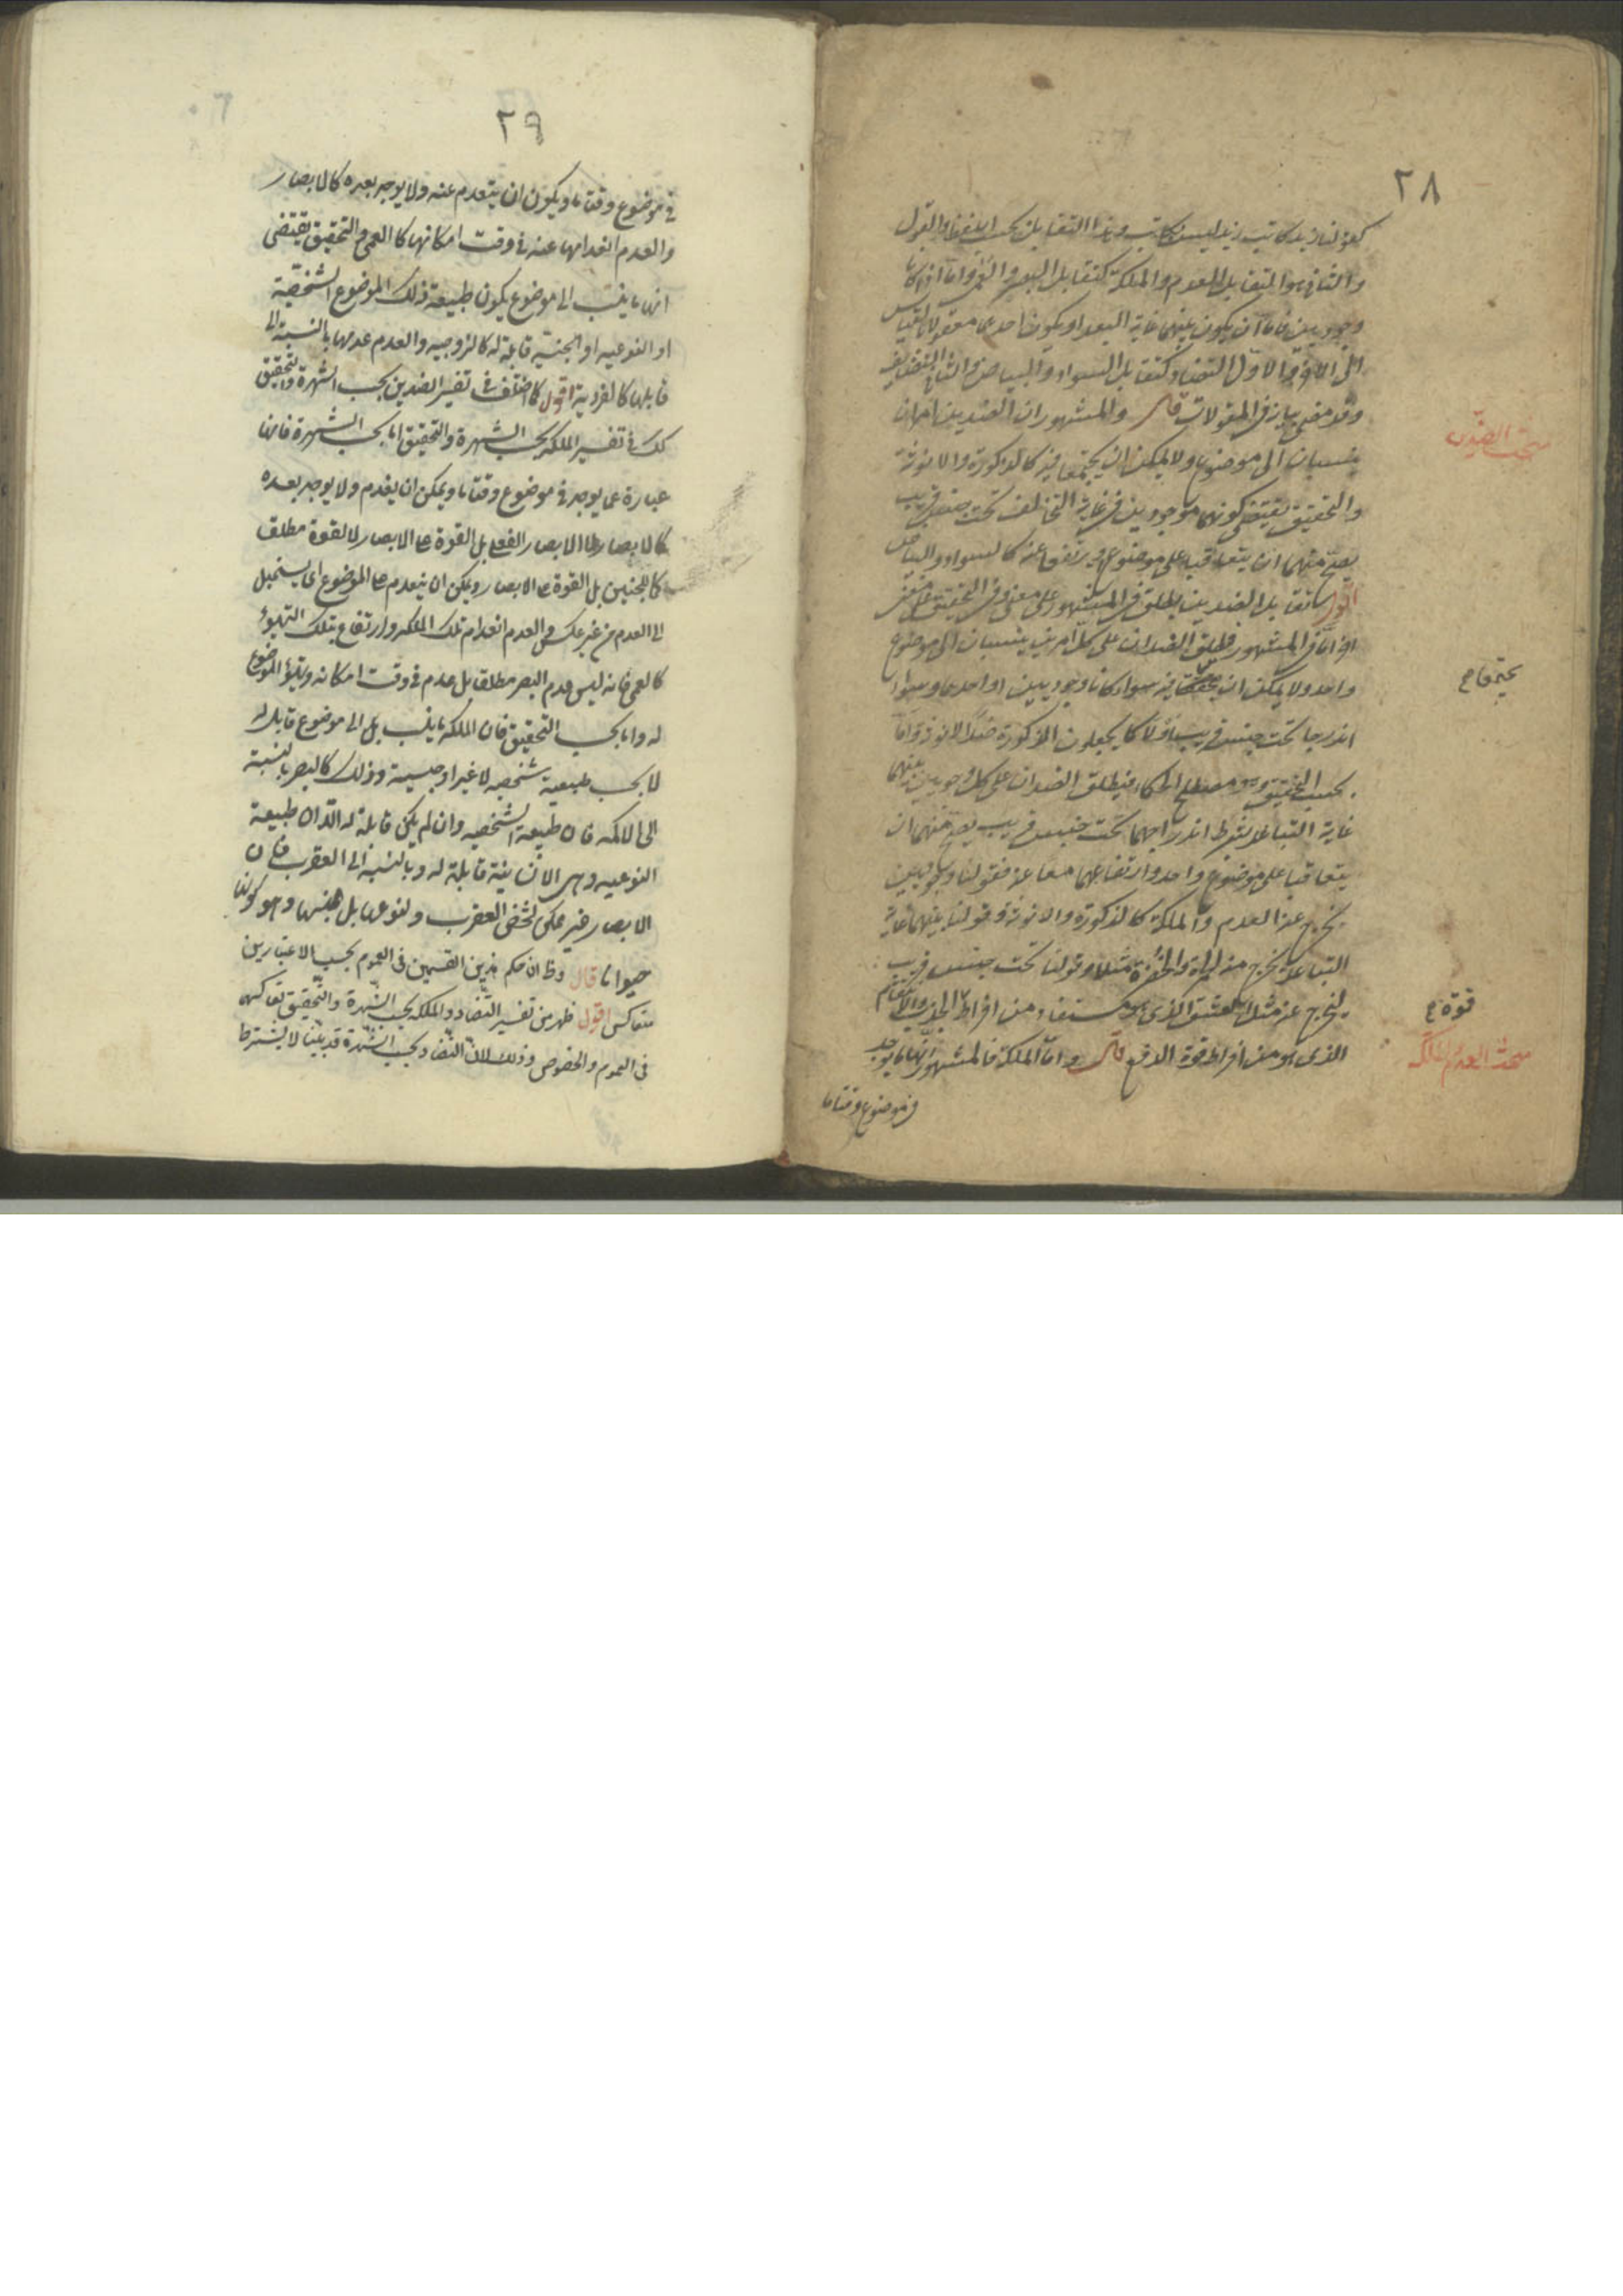 ٢٨
كقولنا زيد كاتب زيد ليس بكاتب وهذا التقابل بحسب اللفظ والقول
والثانى هو التقابل العدم والملكة كتقابل البصر والعمى واما اذا كانا
وجوديين فاما ان يكون بينهما غاية البعد او يكون احدهما معقولا بالقياس
الى الآخر والاول التضاد كتقابل السواد والبياض والثانى التضايف
وقد مضى بيانه فى المقولات قال والمشهور ان الضدين امران
ينسبان الى موضوع ولا يمكن ان يجتمعا فيه كالذكورة والانوثة
والتحقيق يقتضى كونهما موجودين فى غاية التخالف تحت جنس قريب
يصح منهما ان يتعاقبا على موضوع او يرتفعا عنه كالسواد والبياض
اقول تقابل الضدين يطلق فى المشهور على معنى وفى التحقيق على معنى
اخر اما فى المشهور فيطلق الضدان على كل امرين ينسبان الى موضوع
واحد ولا يمكن ان فيه سواء كانا وجوديين او احدهما وسواء
اندرجا تحت جنس قريب او لا كما يجعلون الذكورة ضد الانوثة واما
بحسب التحقيق وهو مصطلح الحكماء فيطلق الضدان على كل وجوديين بينهما
غاية التباعد بشرط اندراجهما تحت جنس قريب يصح منهما ان
يتعاقبا على موضوع واحد وارتفاعهما معا عنه فقولنا وجوديين
يخرج عنه العدم والملكة كالذكورة والانوثة وقولنا بينهما غاية
التباعد يخرج عنه الحمرة مثلا وقولنا تحت جنس قريب
ليخرج عنه مثل العشق الذى هو مستفاد من افراط
الذى هو من افراط قوة الدفع قال واما الملكة فالمشهور انها ما يوجد
فى موضوع وقتا ما
مبحث الضدين
يجتمعا صح
قوة ع
مبحث العدم والملكة
٢٩
فى موضوع وقتا ما ويكون ان يتعدم عنه ولا يوجد بعده كالابصار
والعدم انعدامها عنه فى وقت امكانها كالعمى والتحقيق يقتضى
انها ما ينسب الى موضوع يكون طبيعة ذلك الموضوع الشخصية
او النوعيه او الجنسية قابلة له كالزوجيه والعدم عدمها بالنسبة الى
قابلها كالفردية اقول كما اختلف فى تفسير الضدين بحسب الشهرة والتحقيق
كك فى تفسير الملكة بحسب الشهرة والتحقيق اما بحسب الشهرة فانها
عبارة عما يوجد فى موضوع وقتا ما ويمكن ان يعدم ولا يوجد بعده
كالابصار لا الابصار الفعلى بل القوة على الابصار لا القوة مطلقا
كما للجنين بل القوة على الابصار ويمكن ان ينعدم عن الموضوع اى يستحيل
الى العدم من غير عكس والعدم انعدام تلك الملكه وارتفاع تلك التهيؤ
كالعمى فانه ليس عدم البصر مطلقا بل عدم فى وقت امكانه وتهيؤ الموضوع
له واما بحسب التحقيق فان الملكة ما ينسب بل الى موضوع قابل له
لا بحسب طبيعية شخصيه لا غير او جنسية وذلك كالبصر بالنسبة
الى الاكمه فان طبيعة الشخصيه وان لم يكن قابلة له الا ان طبيعة
النوعيه وهى الانسانية قابلة له وبالنسبة الى العقرب فان
الابصار غير ممكن لشخص العقرب ولنوعها بل لجنسها وهو كونها
حيوانا قال وظ ان حكم هذين القسمين فى العموم بحسب الاعتبارين
متعاكس اقول ظهر من تفسير التضاد والملكه بحسب الشهرة والتحقيق تعاكسهما
فى العموم والخصوص وذلك لان التضاد بحسب الشهرة قد بينا لا يشترط